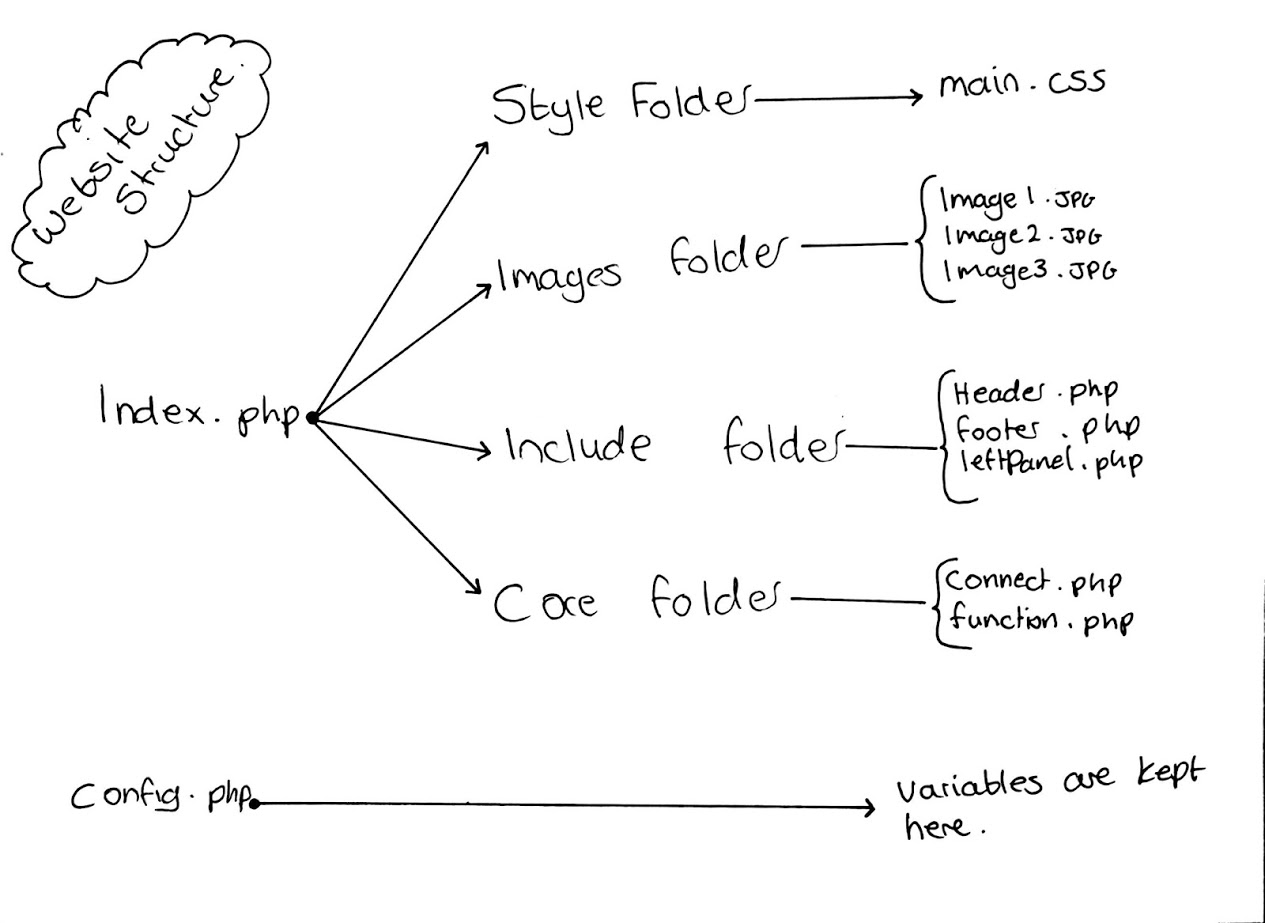 Website
Structure.
Style Folder
main.css
Images folder
Image1.JPG
Image2.JPG
Image3.JPG
Index.php
Include folder
Header.php
footer.php
leftPanel.php
Core folder
Connect.php
function.php
Config.php
variables are kept
here.